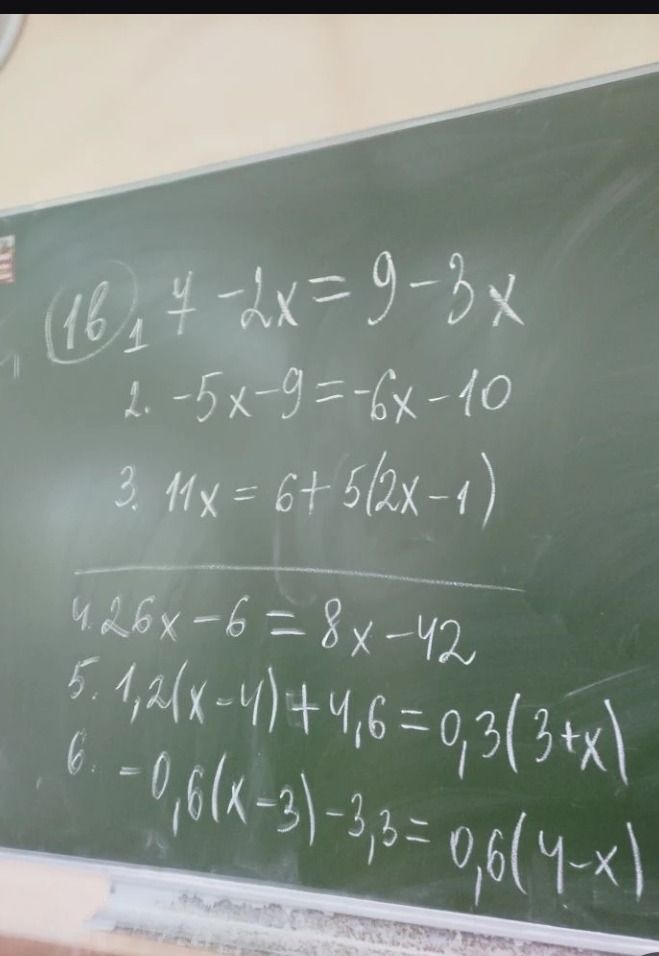 1в 1 7 - 2x = 9 - 3x
2. -5x - 9 = -6x - 10
3. 11x = 6 + 5(2x - 1)
4. 26x - 6 = 8x - 42
5. 1,2(x - 4) + 4,6 = 0,3(3 + x)
6. -0,6(x - 3) - 3,3 = 0,6(4 - x)